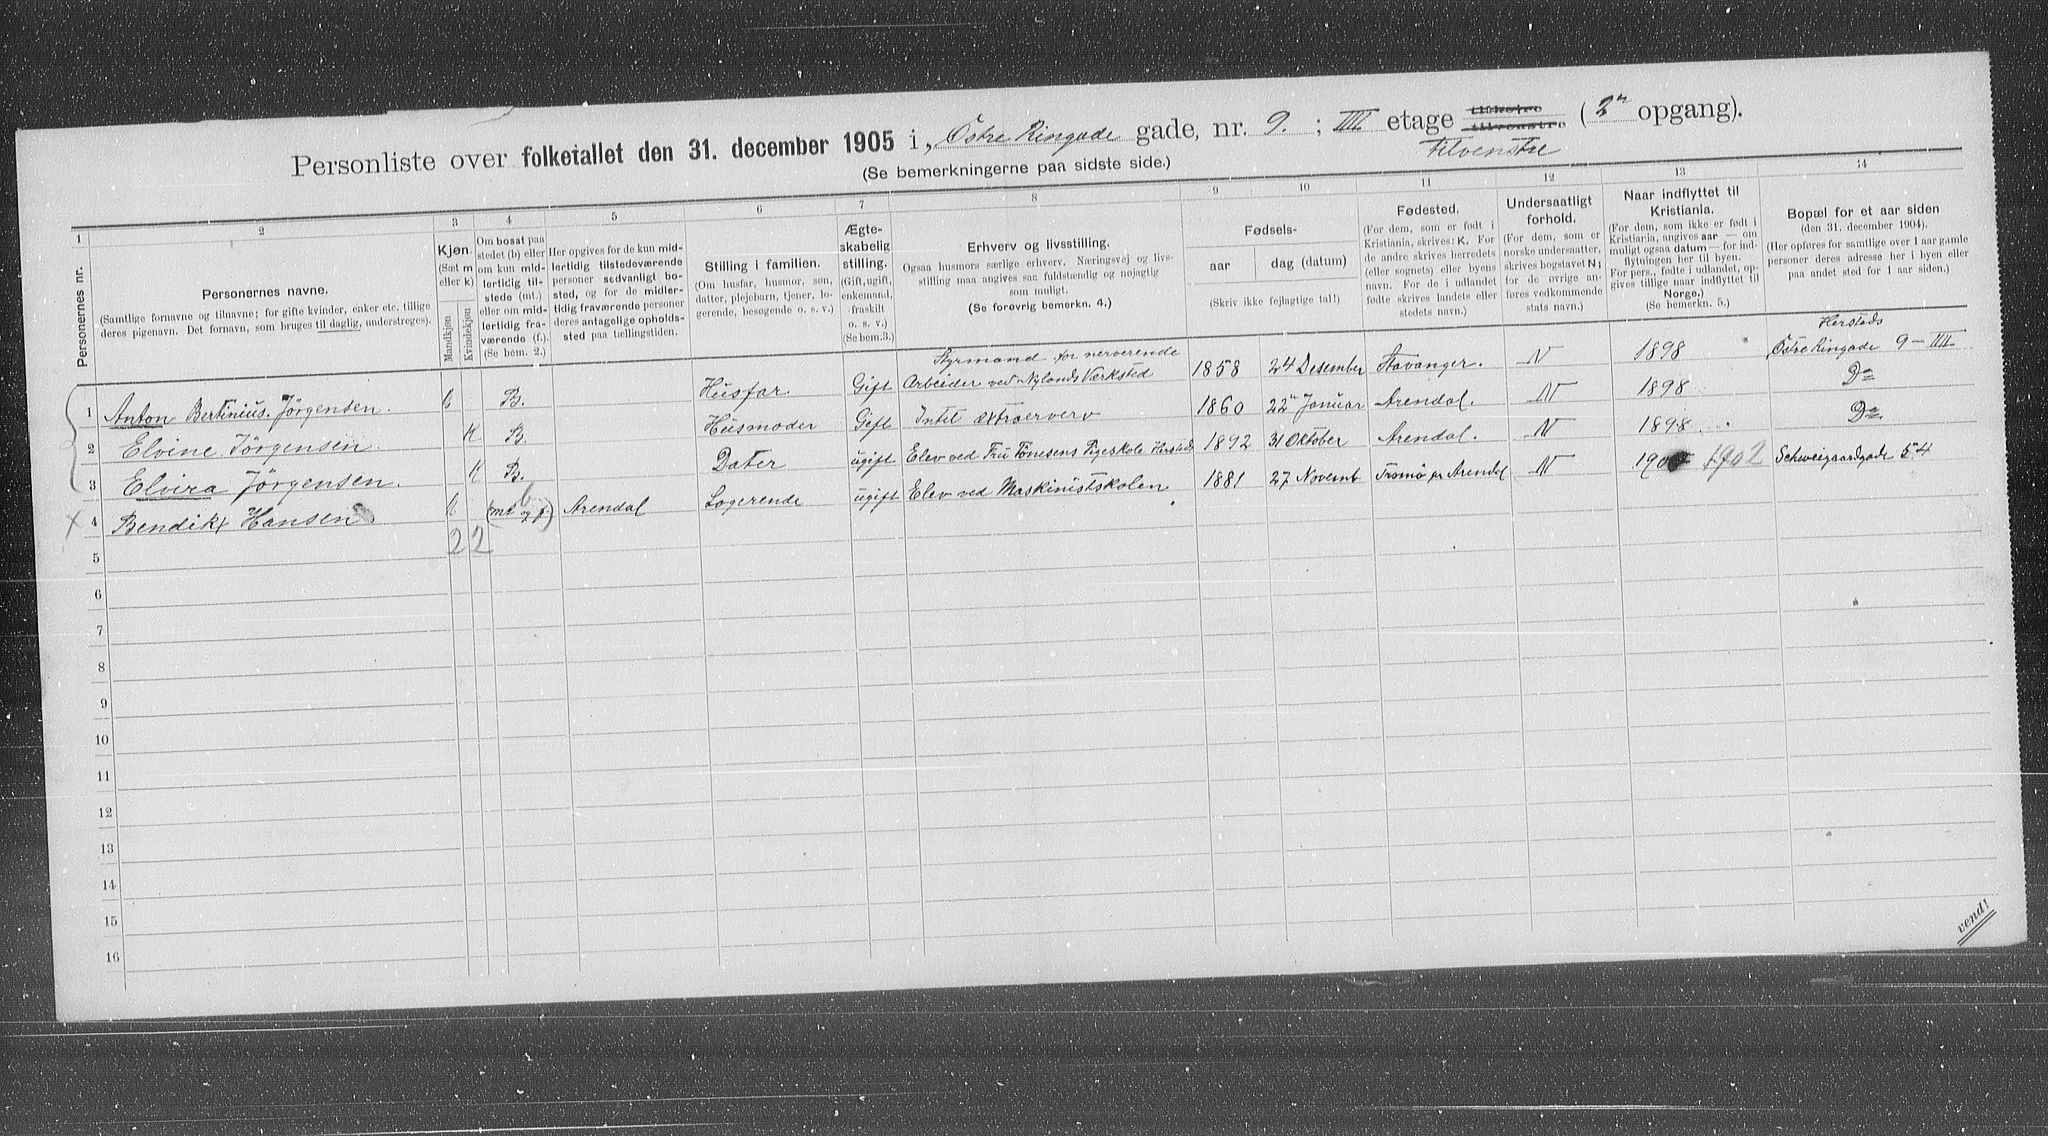 Personliste over folketallet den 31. december 1905 i Östre Ringade gade, nr. 9. ; IIII etage tilhøire tilvenstre (2n opgang).
Tilvenstre
(Se bemerkningerne paa sidste side.)
1 2 3 4 5 6 7 8 9 10 11 12 13 14
Personernes nr.
Personernes navne.
(Samtlige fornavne og tilnavne; for gifte kvinder, enker etc. tillige
deres pigenavn. Det fornavn, som bruges til daglig, understreges).
Kjøn.
(Sæt m
eller k)
Mandkjøn
Kvindekjøn
Om bosat paa
stedet (b) eller
om kun mid-
lertidig til-
stede (mt.)
eller om mid-
lertidig fra-
værende (f.).
(Se bem. 2.)
Her opgives for de kun mid-
lertidig tilstedeværende
personer sedvanligt bo-
sted, og for de midler-
tidig fraværende personer
deres antagelige opholds-
sted paa tællingstiden.
Stilling i familien.
(Om husfar, husmor, søn,
datter, plejebarn, tjener, lo-
gerende, besøgende o. s. v.)
Ægte-
skabelig
stilling.
(Gift, ugift,
enkemand,
fraskilt
o. s. v.)
(Se bem. 3.)
Erhverv og livsstilling.
Ogsaa husmors særlige erhverv. Næringsvej og livs-
stilling maa angives saa fuldstændig og nøjagtig
som muligt.
(Se forøvrig bemerkn. 4.)
Fødsels-
aar
dag (datum)
(Skriv ikke fejlagtige tal!)
Fødested.
(For dem, som er født i
Kristiania, skrives: K. For
de andre skrives herredets
(eller sognets) eller byens
navn. For de i udlandet
fødte skrives landets eller
stedets navn.)
Undersaatligt
forhold.
(For dem, som er
norske undersaatter,
skrives bogstavet N;
for de øvrige an-
føres vedkommende
stats navn.)
Naar indflyttet til
Kristiania.
(For dem, som ikke er født i
Kristiania, angives aar — om
muligt ogsaa datum — for ind-
flytningen her til byen.
For pers., fødte i udlandet, op-
gives tillige naar indflyttet til
Norge.)
(Se bemerkn. 5.)
Bopæl for et aar siden
(den 31. december 1904).
(Her opføres for samtlige over 1 aar gamle
personer deres adresse her i byen eller
paa andet sted for 1 aar siden.)
Styrmand for nerverende
Hersteds
1 Anton Bertinius Jörgensen. M B. Husfar. Gift Arbeider ved Nylands Værksted 1858 24 Desember Stavanger. N 1898 Östre Ringade 9-IIII
2 Elvine Jörgensen. K B. Husmoder Gift Intet extraerverv 1860 22n Januar Arendal. N 1898 Do
3 Elvira Jörgensen. K B. Dater ugift Elev ved Fru Tönesens Pigeskole Hersteds 1892 31 Oktober Arendal. N 1898 Do
X 4 Bendikt Hansen M (mt og f) b Arendal Logerende ugift Elev ved Maskinistskolen 1881 27 Novemb Tromø pr Arendal N 1902 Schweigaardgade 54
5 2 2
6
7
8
9
10
11
12
13
14
15
16
vend!